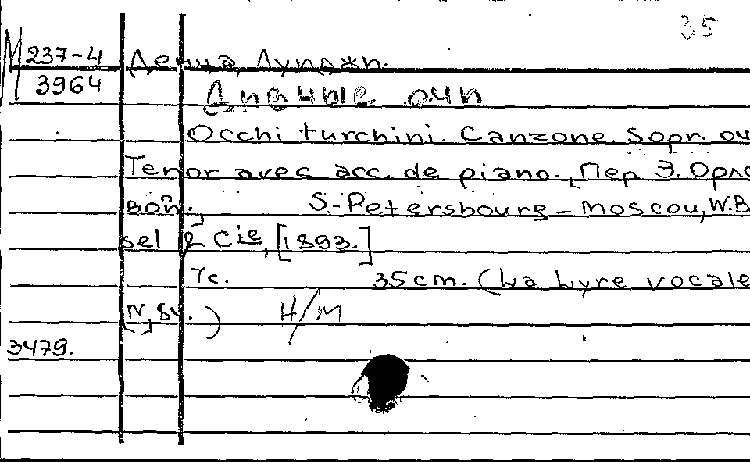 35
М 237-4
3964
Денца, Луиджи.
Дивные очи
Occhi turchini. Canzone. Sopr. ou
Tenor avec acc. de piano., [Пер Э. Орло
вой.; S.-Petersbourg – Moscou, W. B
sel & Cie, [1893.]
7с. 35 cm. (La Lyre vocale
N, 84.) Н/М
3479.